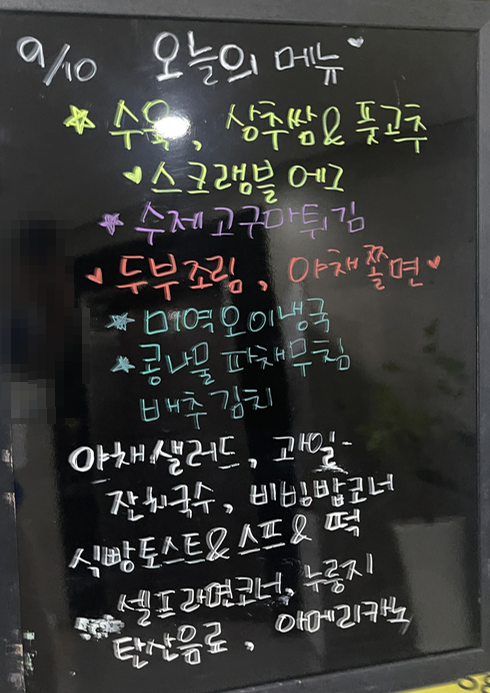 9/10 오늘의 메뉴
수육, 상추쌈 & 풋고추
스크램블 에그
수제고구마튀김
두부조림, 야채쫄면
미역오이냉국
콩나물파채무침
배추김치
야채샐러드, 과일
잔치국수, 비빔밥코너
식빵토스트&스프& 떡
셀프라면코너, 누룽지
탄산음료, 아메리카노